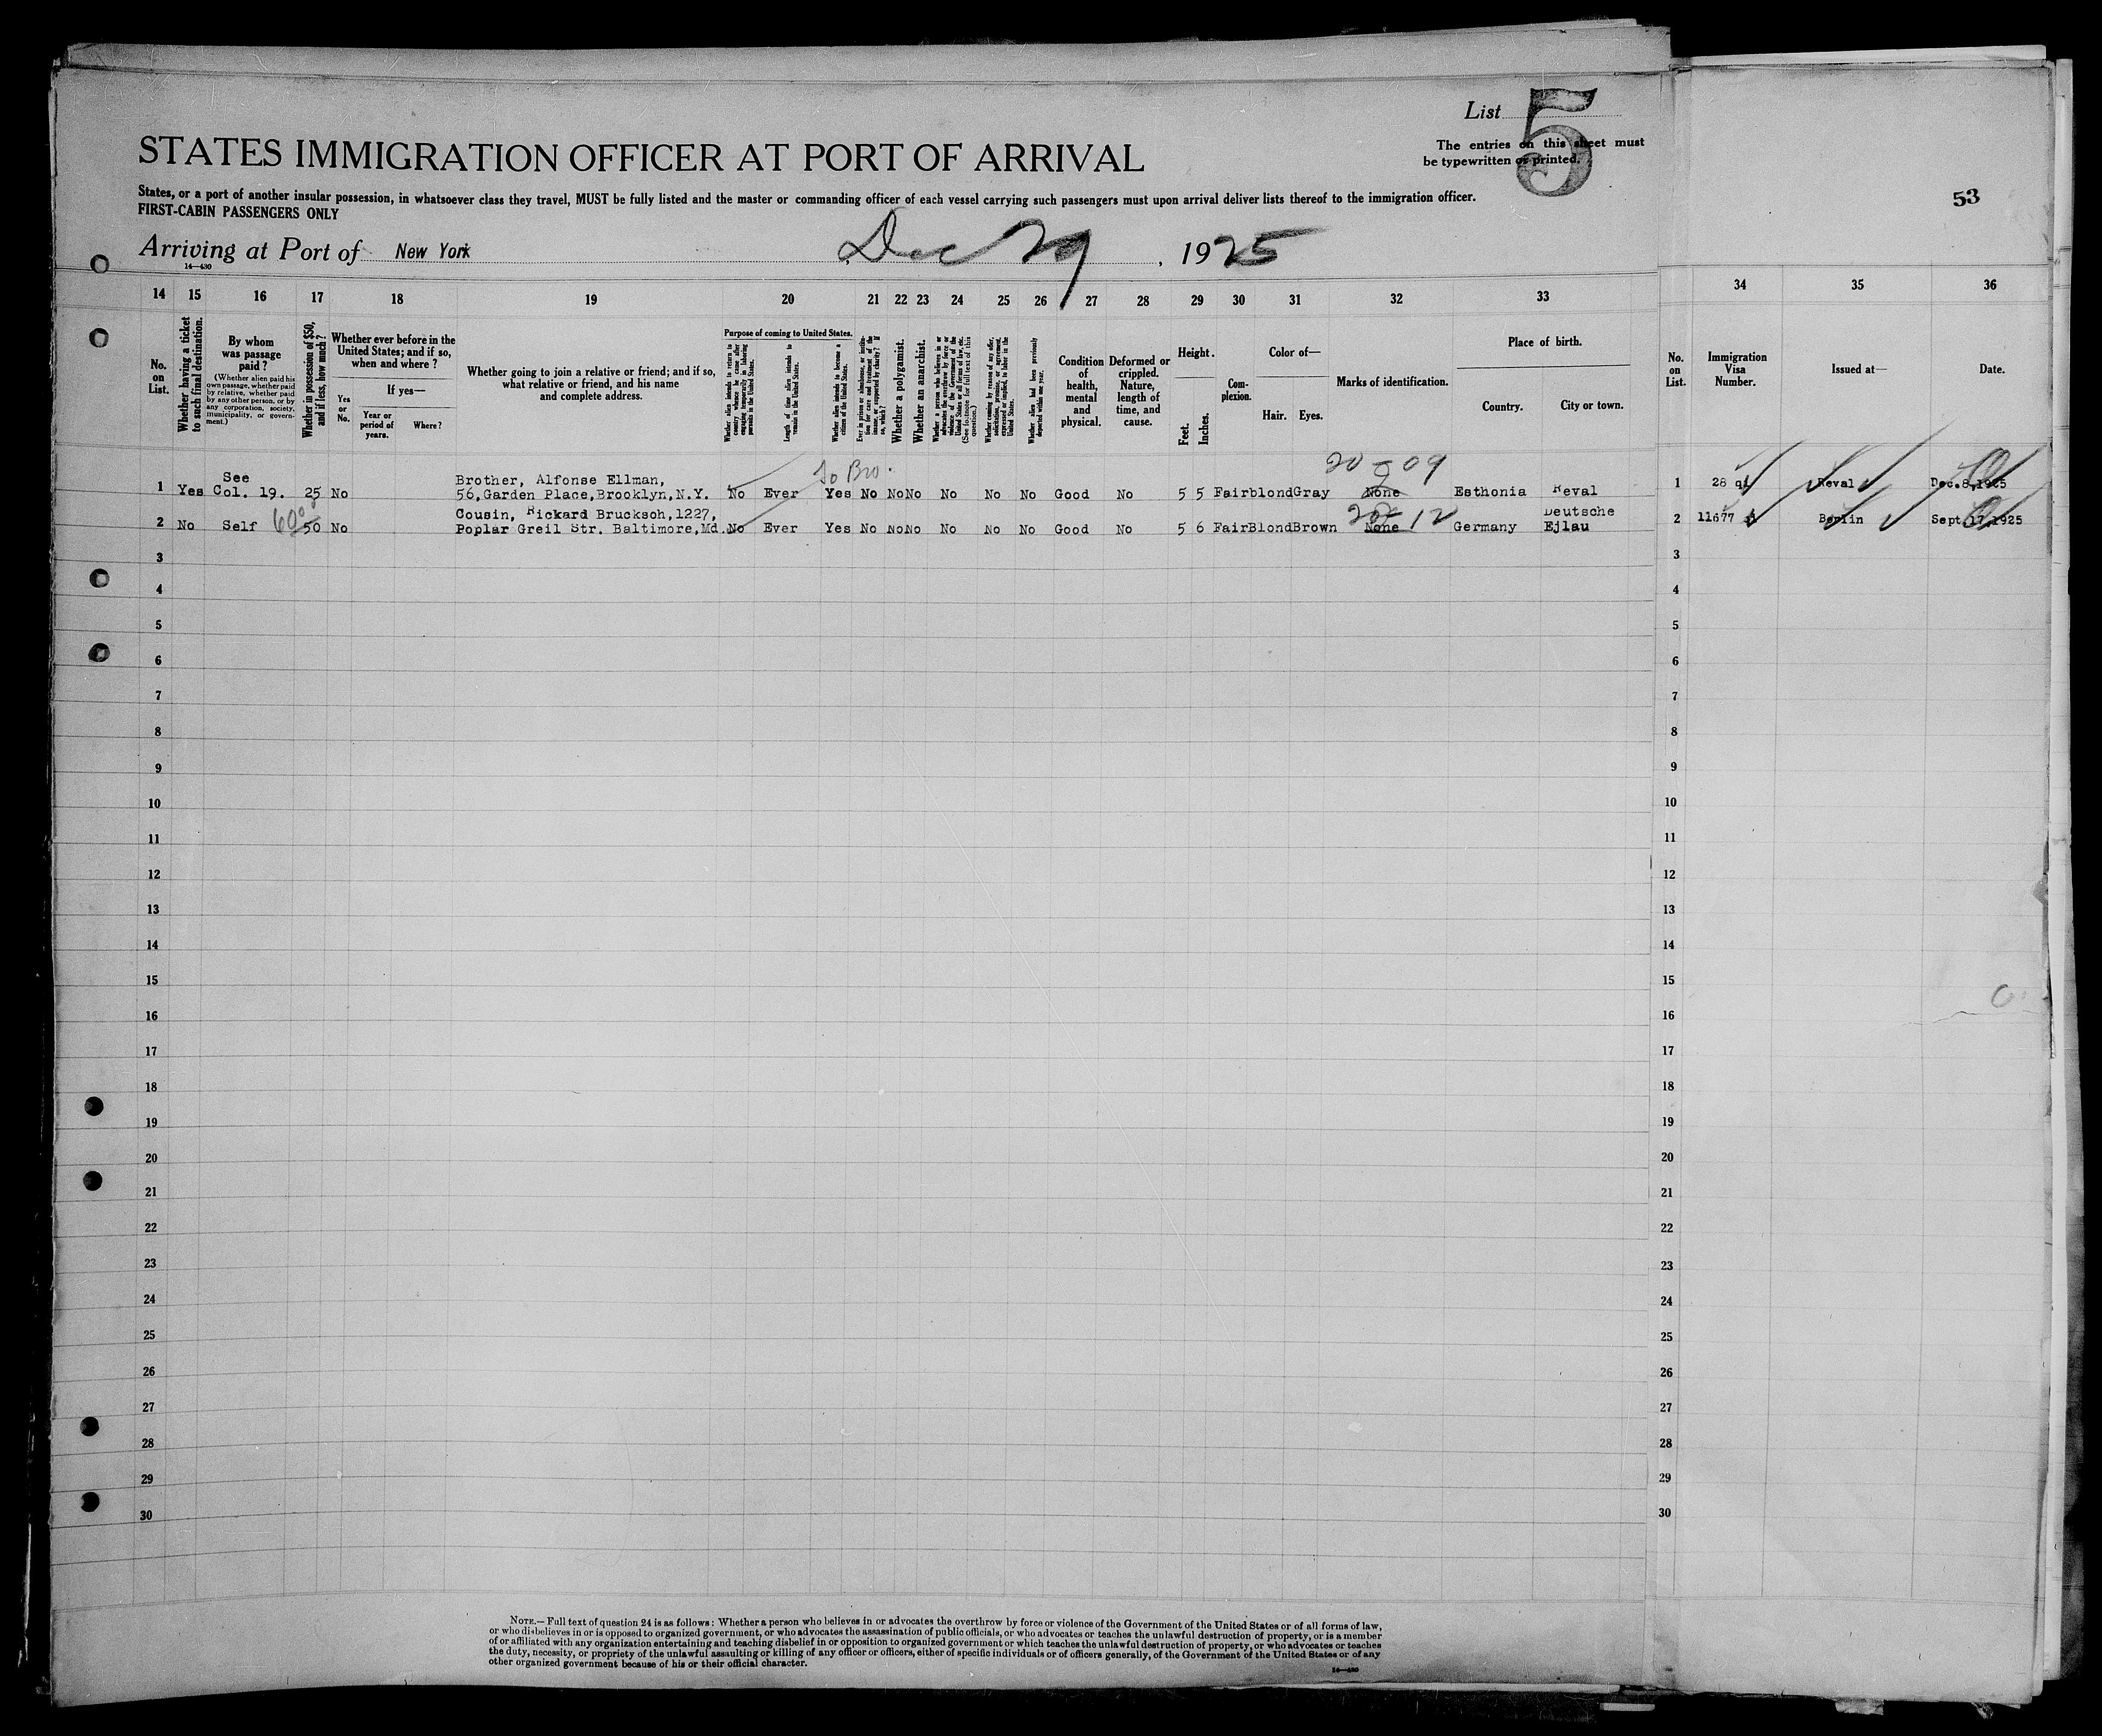 List 5
STATES IMMIGRATION OFFICER AT PORT OF ARRIVAL
The entries on this sheet must
be typewritten or printed.
53
States, or a port of another insular possession, in whatsoever class they travel, MUST be fully listed and the master or commanding officer of each vessel carrying such passengers must upon arrival deliver lists thereof to the immigration officer.
FIRST-CABIN PASSENGERS ONLY
Arriving at Port of New York, Dec 29, 1925
14—430
14 15 16 17 18 19 20 21 22 23 24 25 26 27 28 29 30 31 32 33 34 35 36
No. on List.
Whether having a ticket to such final destination.
By whom was passage paid?
(Whether alien paid his own passage, whether paid by relative, whether paid by any other person, or by any corporation, society, municipality, or government.)
Whether in possession of $50, and if less, how much?
Whether ever before in the United States; and if so, when and where?
Yes or No.
If yes—
Year or period of years.
Where?
Whether going to join a relative or friend; and if so, what relative or friend, and his name and complete address.
Purpose of coming to United States.
Whether alien intends to return to country whence he came after engaging temporarily in laboring pursuits in the United States.
Length of time alien intends to remain in the United States.
Whether alien intends to become a citizen of the United States.
Ever in prison or almshouse, or institution for care and treatment of the insane, or supported by charity? If so, which?
Whether a polygamist.
Whether an anarchist.
Whether a person who believes in or advocates the overthrow by force or violence of the Government of the United States or all forms of law, etc. (See footnote for full text of this question.)
Whether coming by reason of any offer, solicitation, promise, or agreement, expressed or implied, to labor in the United States.
Whether alien had been previously deported within one year.
Condition of health, mental and physical.
Deformed or crippled. Nature, length of time, and cause.
Height.
Feet.
Inches.
Complexion.
Color of—
Hair.
Eyes.
Marks of identification.
Place of birth.
Country.
City or town.
No. on List.
Immigration Visa Number.
Issued at—
Date.
To Bro.
20 09
1 Yes See Col. 19. 25 No Brother, Alfonse Ellman, 56,Garden Place,Brooklyn,N.Y. No Ever Yes No No No No No No Good No 5 5 Fair blond Gray None Esthonia Reval 1 28 Reval Dec.8,1925
2 No Self 60 50 No Cousin, Rickard Brucksch,1227, Poplar Greil Str. Baltimore,Md. No Ever Yes No No No No No No Good No 5 6 Fair Blond Brown None 12 Germany Deutsche Ejlau 2 11677 Berlin Sept.17,1925
3 3
4 4
5 5
6 6
7 7
8 8
9 9
10 10
11 11
12 12
13 13
14 14
15 15
16 16
17 17
18 18
19 19
20 20
21 21
22 22
23 23
24 24
25 25
26 26
27 27
28 28
29 29
30 30
NOTE.—Full text of question 24 is as follows: Whether a person who believes in or advocates the overthrow by force or violence of the Government of the United States or of all forms of law,
or who disbelieves in or is opposed to organized government, or who advocates the assassination of public officials, or who advocates or teaches the unlawful destruction of property, or is a member
of or affiliated with any organization entertaining and teaching disbelief in or opposition to organized government or which teaches the unlawful destruction of property, or who advocates or teaches
the duty, necessity, or propriety of the unlawful assaulting or killing of any officer or officers, either of specific individuals or of officers generally, of the Government of the United States or of any
other organized government because of his or their official character.
14—430